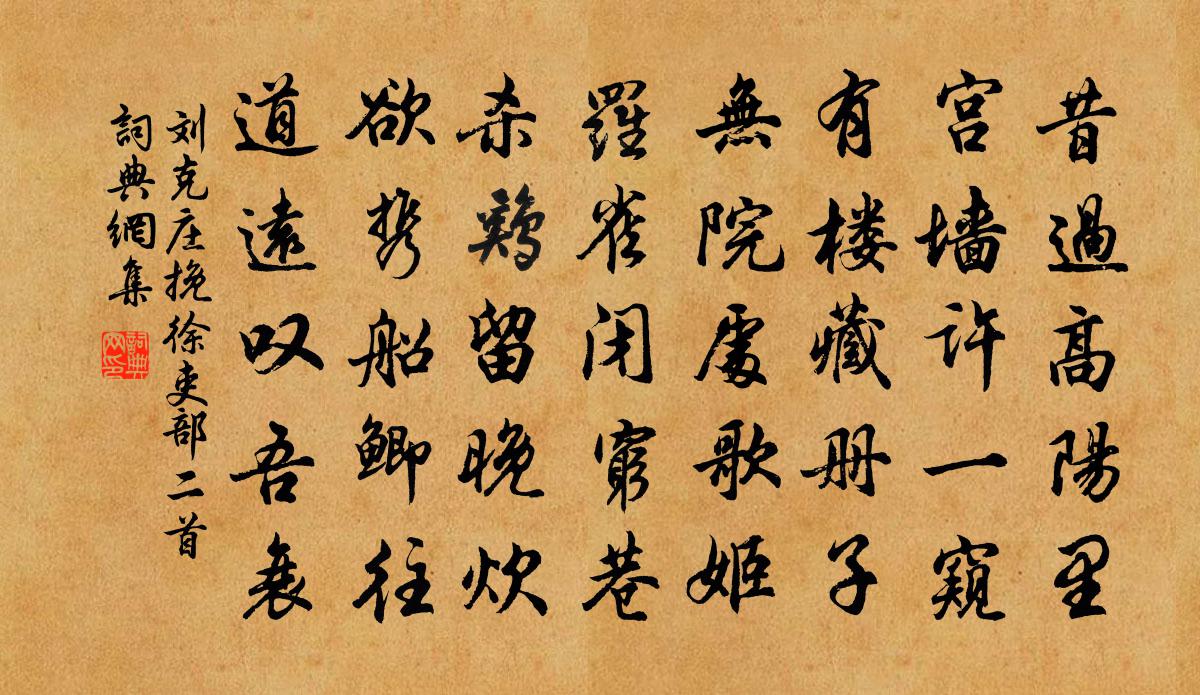 昔過高陽里
宫墙許一窺
有楼藏册子
無院處歌姬
羅雀闭窮巷
杀鷄留晚炊
欲携船鲫往
道遠叹吾衰
刘克庄挽徐吏部二首
詞典網集
詞典网印